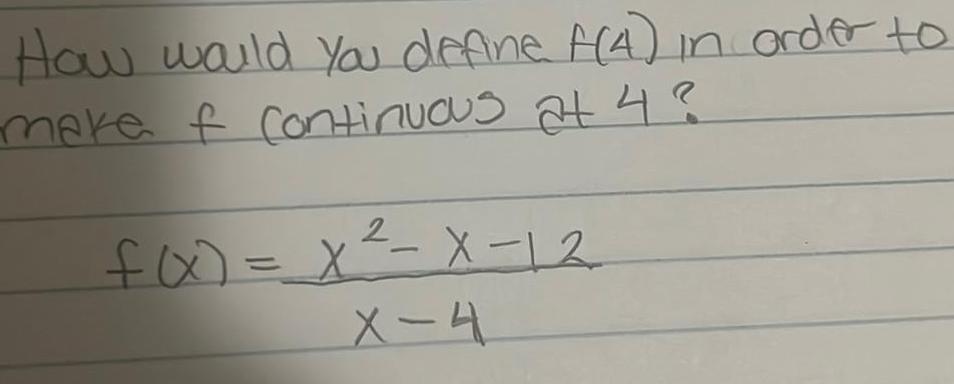 How would you define f(4) in order to
make f continuous at 4?
f(x) = x² - x - 12
x - 4